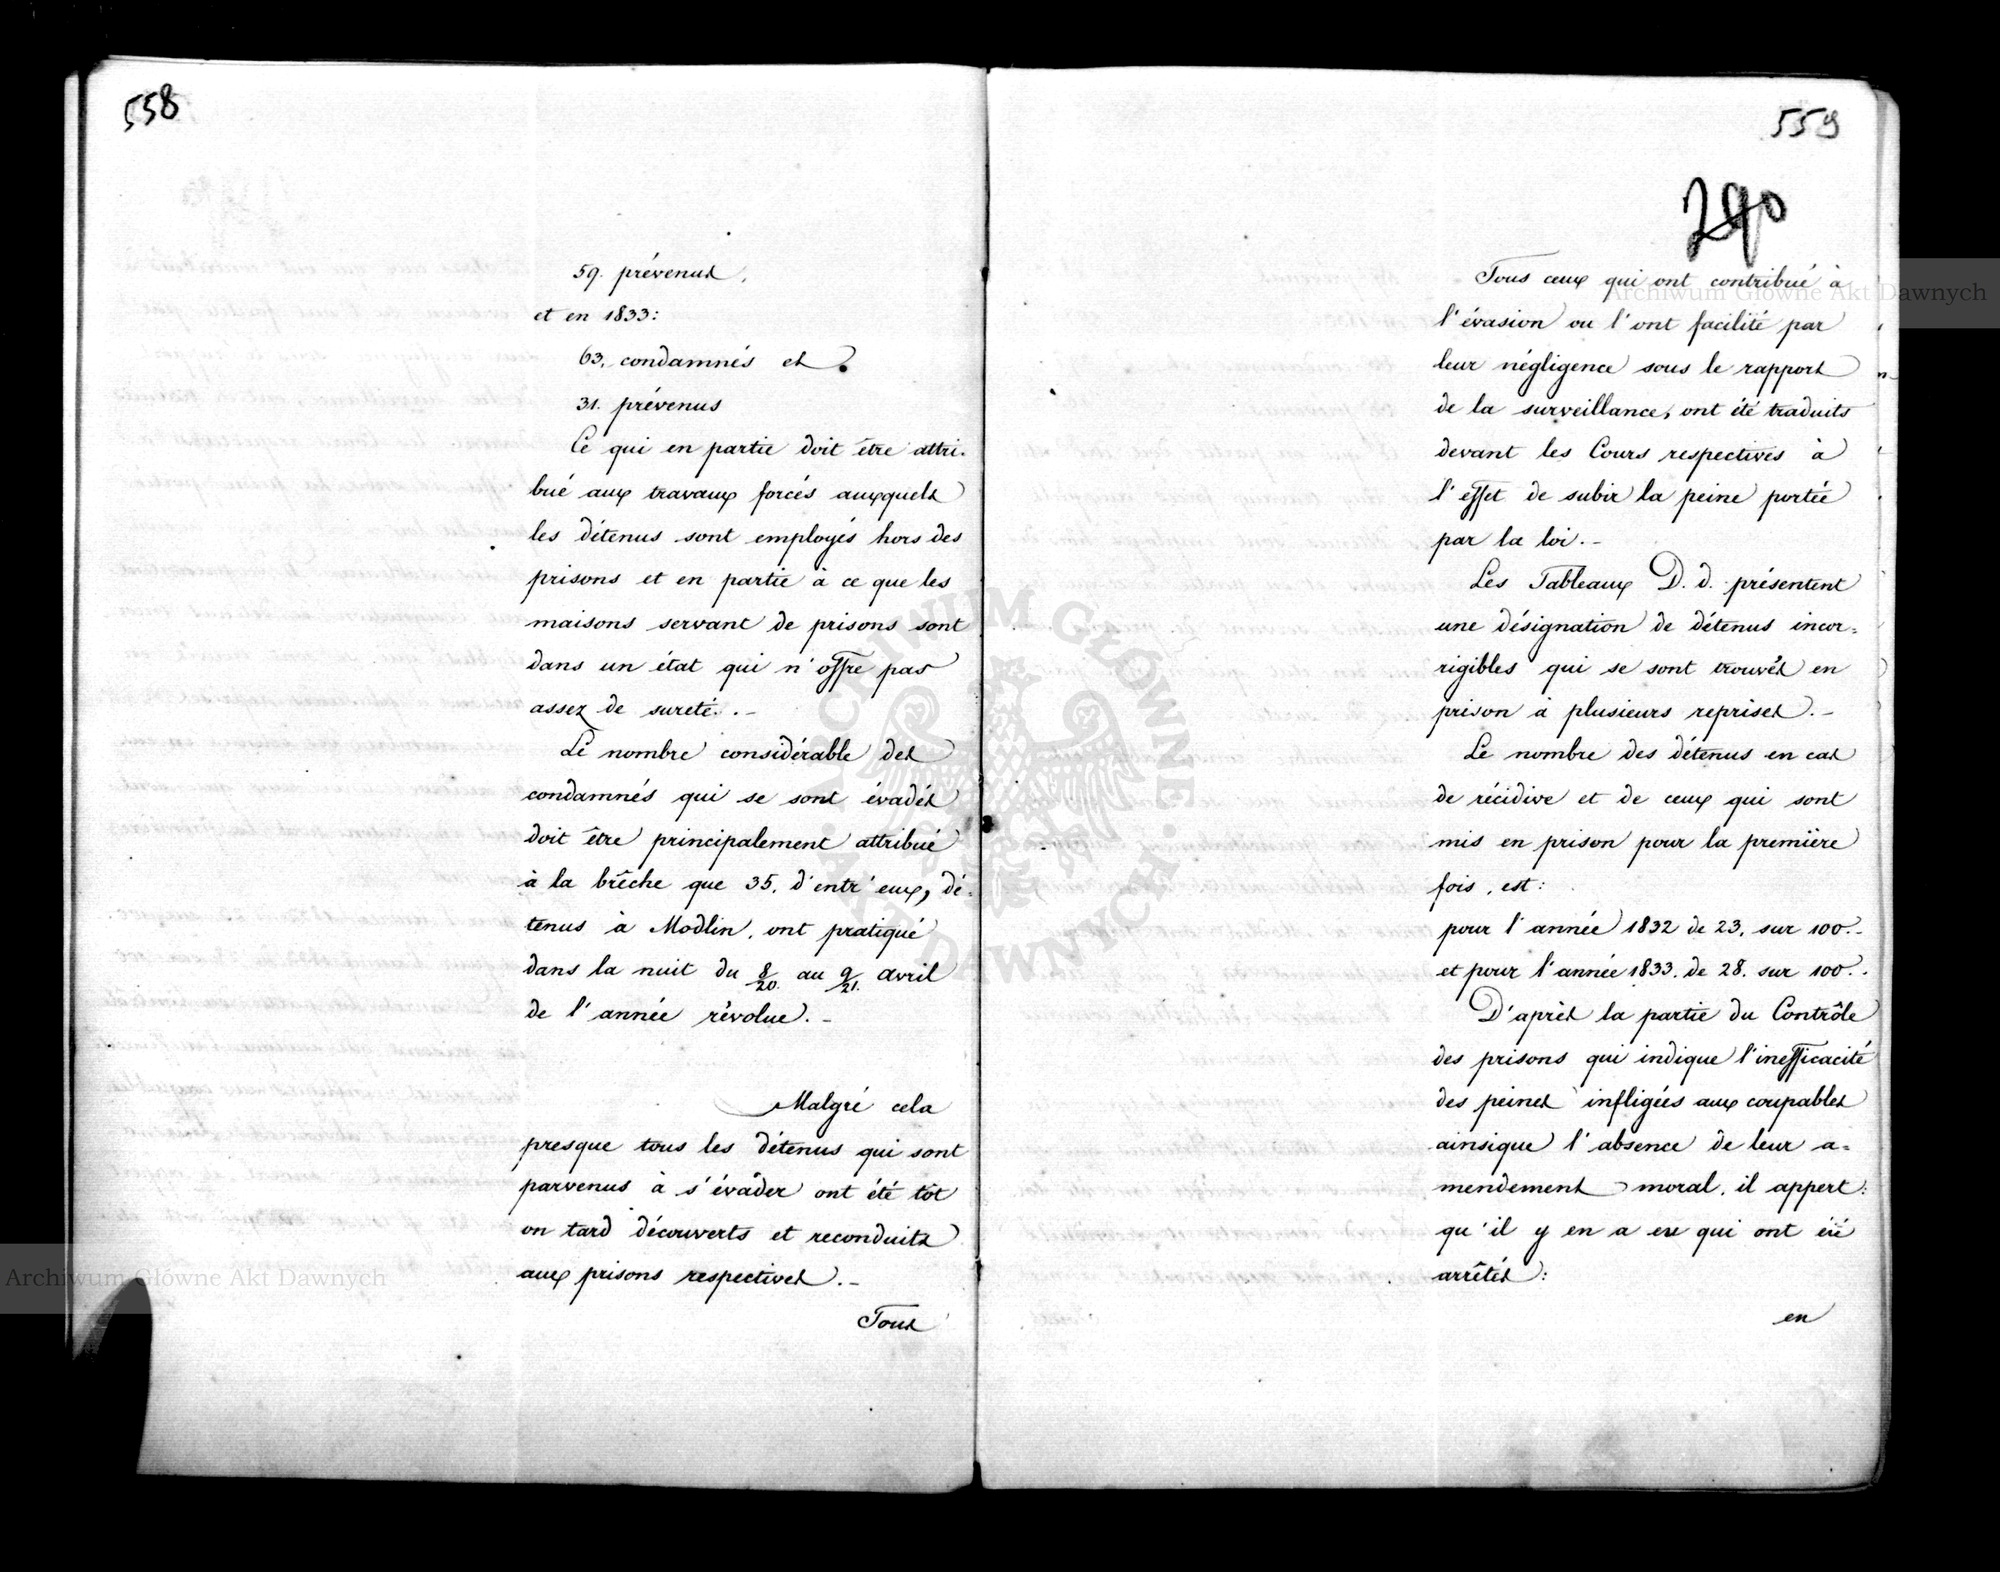 558
59. prévenus,
et en 1833:
63. condamnés et
31. prévenus
Ce qui en partie doit être attri-
bué aux travaux forcés auxquels
les détenus sont employés hors des
prisons et en partie à ce que les
maisons servant de prisons sont
dans un état qui n'offre pas
assez de sureté. . -
Le nombre considérable des
condamnés qui se sont évadés
doit être principalement attribué
à la brêche que 35. d'entr'eux, dé-
tenus à Modlin, ont pratiqué
dans la nuit du 8/20. au 9/21. avril
de l'année révolue. -
Malgré cela
presque tous les détenus qui sont
parvenus à s'évâder ont été tôt
on tard découverts et reconduits
aux prisons respectives. -
Tous
559
290
Tous ceux qui ont contribué à
l'évasion ou l'ont facilité par
leur négligence sous le rapport
de la surveillance, ont été traduits
devant les Cours respectives à
l'effet de subir la peine portée
par la loi. -
Les Tableaux D. d. présentent
une désignation de détenus incor=
rigibles qui se sont trouvés en
prison à plusieurs reprises. -
Le nombre des détenus en cas
de récidive et de ceux qui sont
mis en prison pour la première
fois, est:
pour l'année 1832 de 23. sur 100. -
et pour l'année 1833. de 28. sur 100. .
D'après la partie du Contrôle
des prisons qui indique l'inefficacité
des peines infligées aux coupables
ainsique l'absence de leur a=
mendement moral, il appert:
qu'il y en a eu qui ont été
arrêtés:
en
Archiwum Główne Akt Dawnych
Archiwum Główne Akt Dawnych
ARCHIWUM GŁÓWNE AKT DAWNYCH